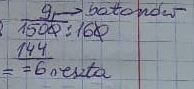 9 → batonów
1500 : 160
144
= = 6 reszta